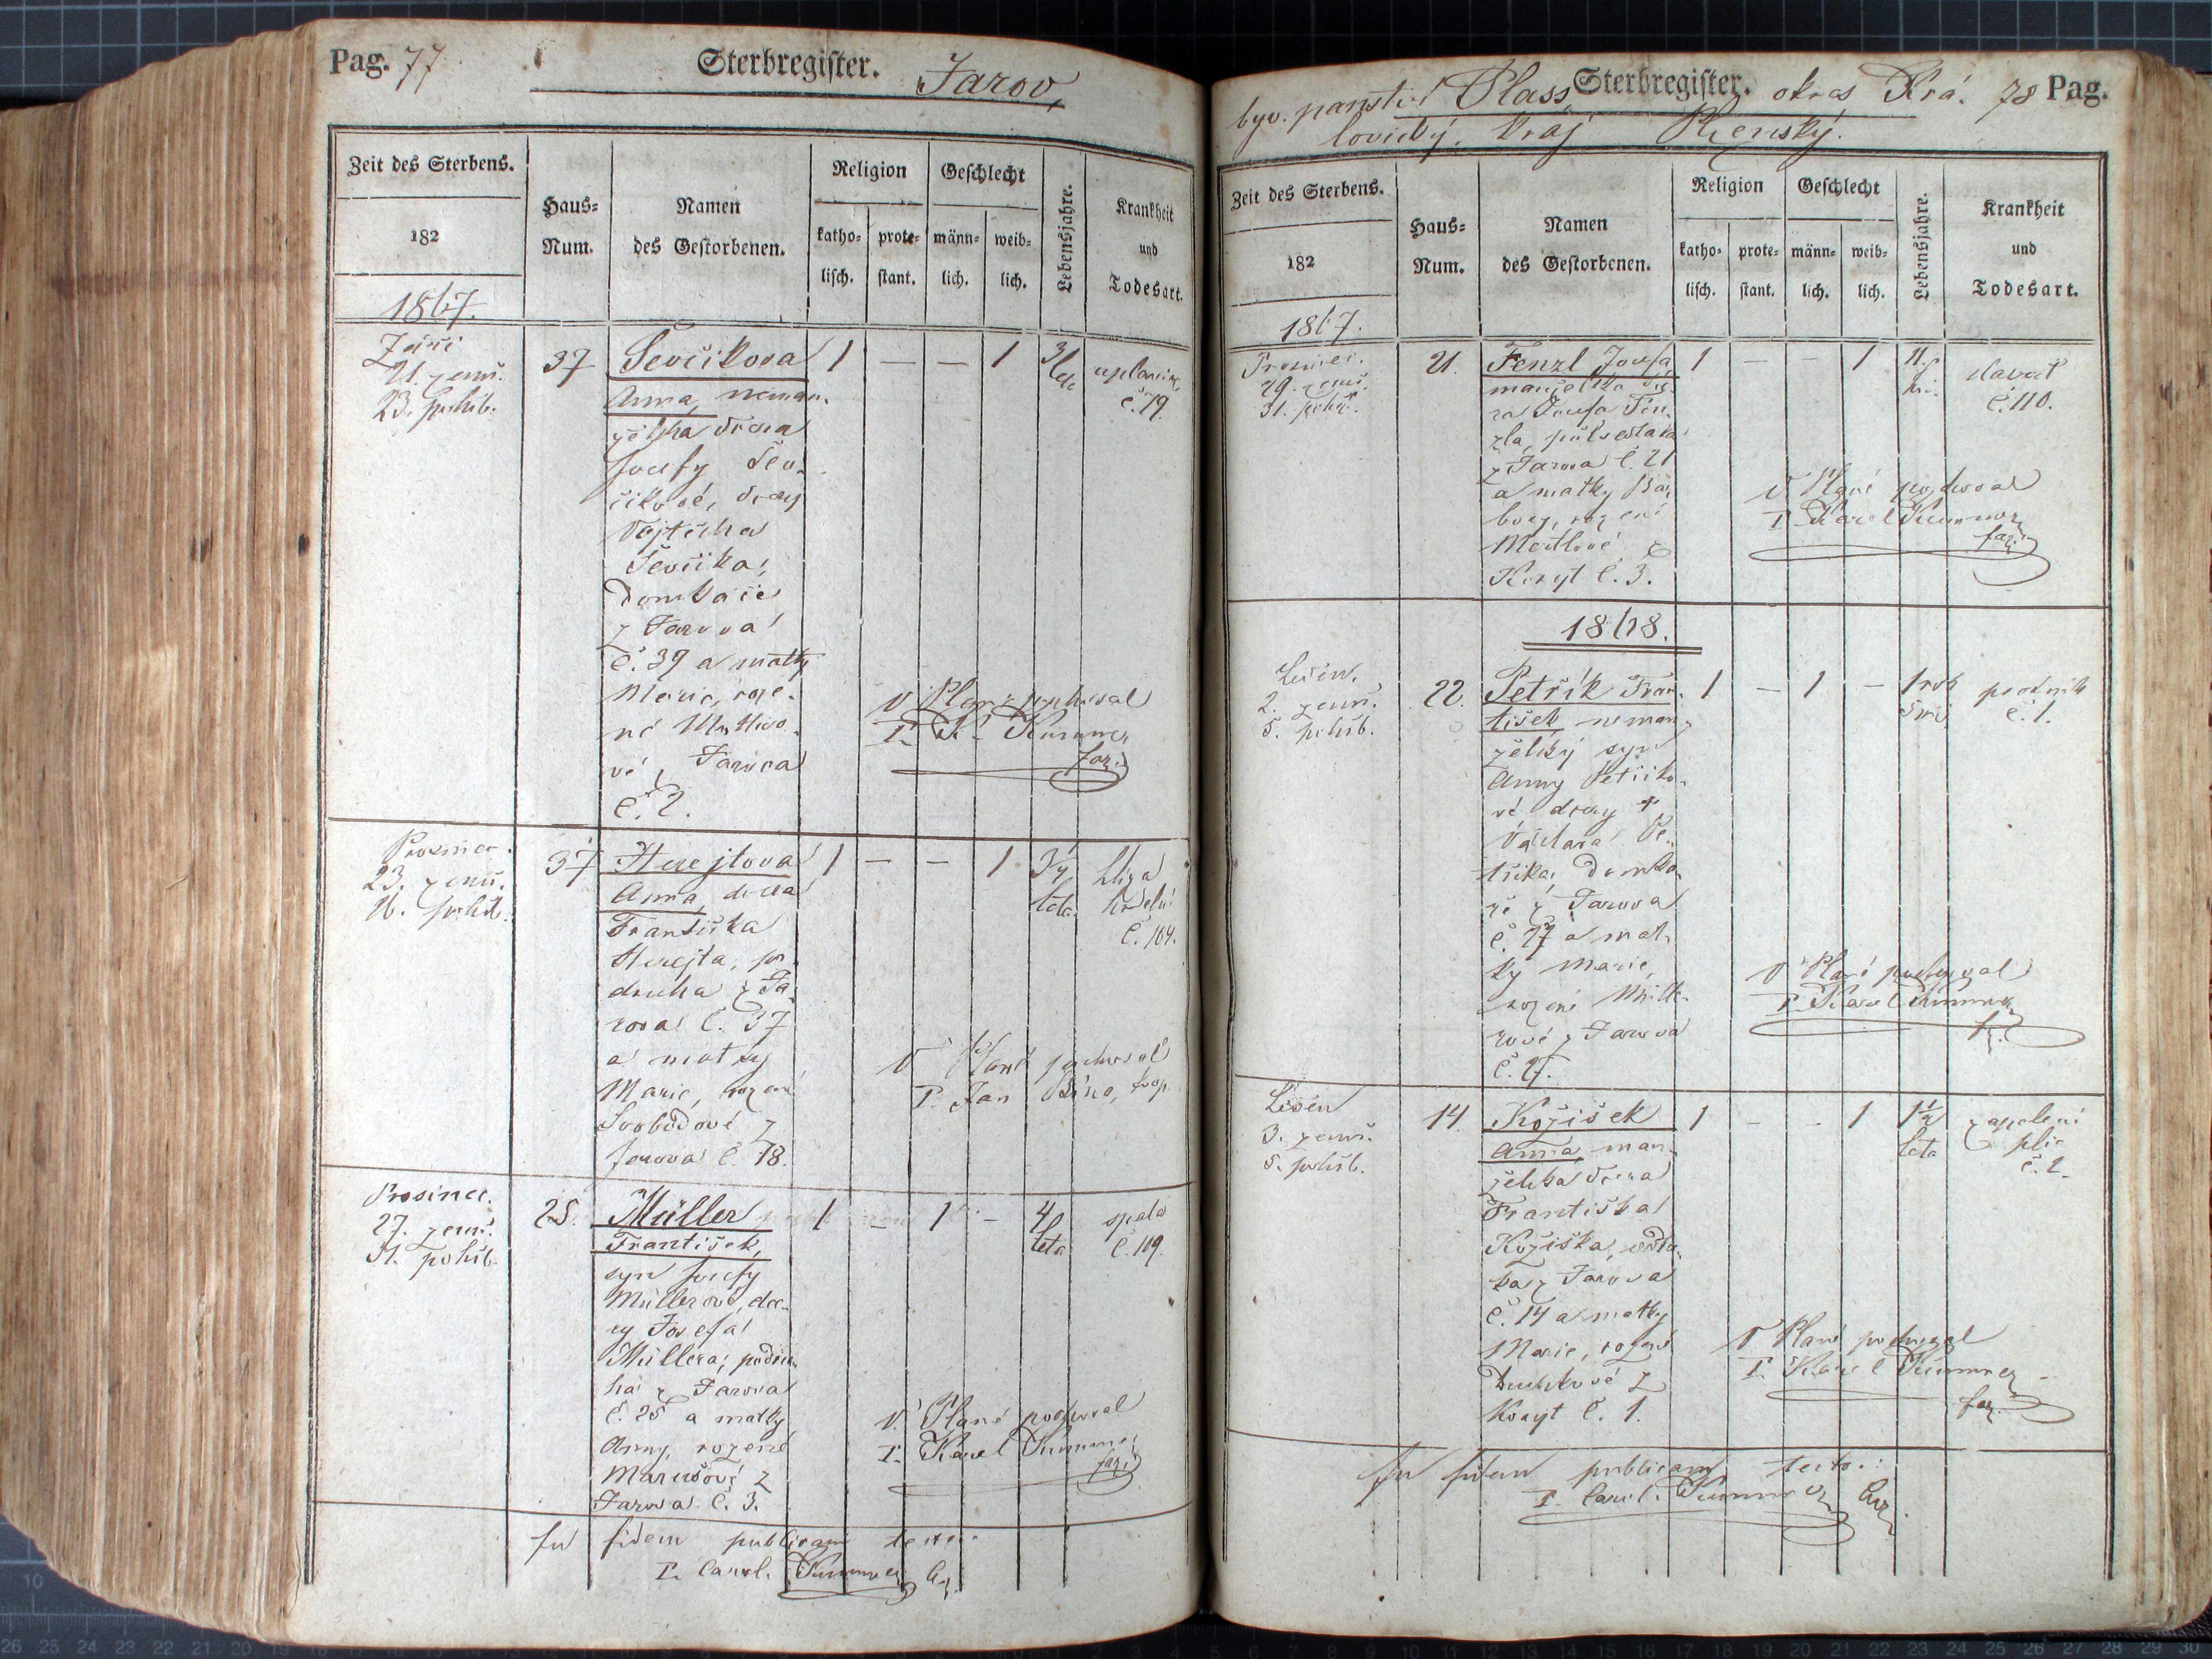 Pag. 77
Sterbregister.
Jarov,
Zeit des Sterbens.
182
1867.
Haus-
Num.
Namen
des Gestorbenen.
Religion
katho-
lisch.
prote-
stant.
Geschlecht
männ-
lich.
weib-
lich.
Lebensjahre.
Krankheit
und
Todesart.
Září
21. zemř.
23. pohřb.
37
Ševčikova
Anna, neman-
želska dcera
Josefy Šev-
čikové, dcery
Vojtěcha
Ševčika,
Domkáře
z Jarova
č. 39 a matky
Marie, roze-
né
vé z Jarova
č. 2.
1 — — 1
č. 79.
V Plané pochoval
P. K. Kummer
far.
Prosinec.
23. zemř.
26. pohřb.
37
Herejtova
Anna, dcera
Františka
Herejta, po-
druha z Ja-
rova č. 37
a matky
Marie, rozené
Svobodové z
Jarova č. 18.
1 — — 1
3/4
léta
č. 104.
V Plané pochoval
P. Jan
Prosinec.
27. zemř.
31. pohřb.
25.
Müller
František,
syn Josefy
Müllerové, dce-
ry Josefa
Müllera, podru-
ha z Jarova
č. 25 a matky
Anny, rozené
Marešové z
Jarova č. 3.
1 — 1 —
4
léta
spala
č. 109.
V Plané pochoval
P. Karel Kummer
far.
In fidem publicam testor
P. Carol. Kummer
Sterbregister.
78 Pag.
býv. panství Plass, okres Kra-
lovický, kraj Plzenský.
Zeit des Sterbens.
182
1867.
Haus-
Num.
Namen
des Gestorbenen.
Religion
katho-
lisch.
prote-
stant.
Geschlecht
männ-
lich.
weib-
lich.
Lebensjahre.
Krankheit
und
Todesart.
Prosinec.
29. zemř.
31. pohřb.
21.
Fenzl Josefa,
manželska dce-
ra Josefa Fen-
zla, půlsedláka
z Jarova č. 21
a matky Bar-
bory, rozené
z
Koryt č. 3.
1 — — 1
č. 110.
V Plané pochoval
P. Karel Kummer
far.
1868.
Leden.
2. zemř.
5. pohřb.
22.
Petřík Fran-
tišek, neman-
želský syn
Anny Petříko-
vé, dcery †
Václava Pe-
tříka, Domká-
ře z Jarova
č. 27 a mat-
ky Marie,
rozené Mülle-
rové z Jarova
č. 27.
1 — 1 —
1 rok
psotník
č. 1.
V Plané pochoval
P. Karel Kummer
f.
Leden
3. zemř.
5. pohřb.
14.
Kožišek
Anna, man-
želská dcera
Františka
Kožiška, sedlá-
ka z Jarova
č. 14 a matky
Marie, rozené
Duchkové z
Koryt č. 1.
1 - - 1
1½
léta
zapalení
plic
č. 2.
V Plané pochoval
P. Karel Kummer
far.
In fidem publicam testor:
P. Carol. Kummer